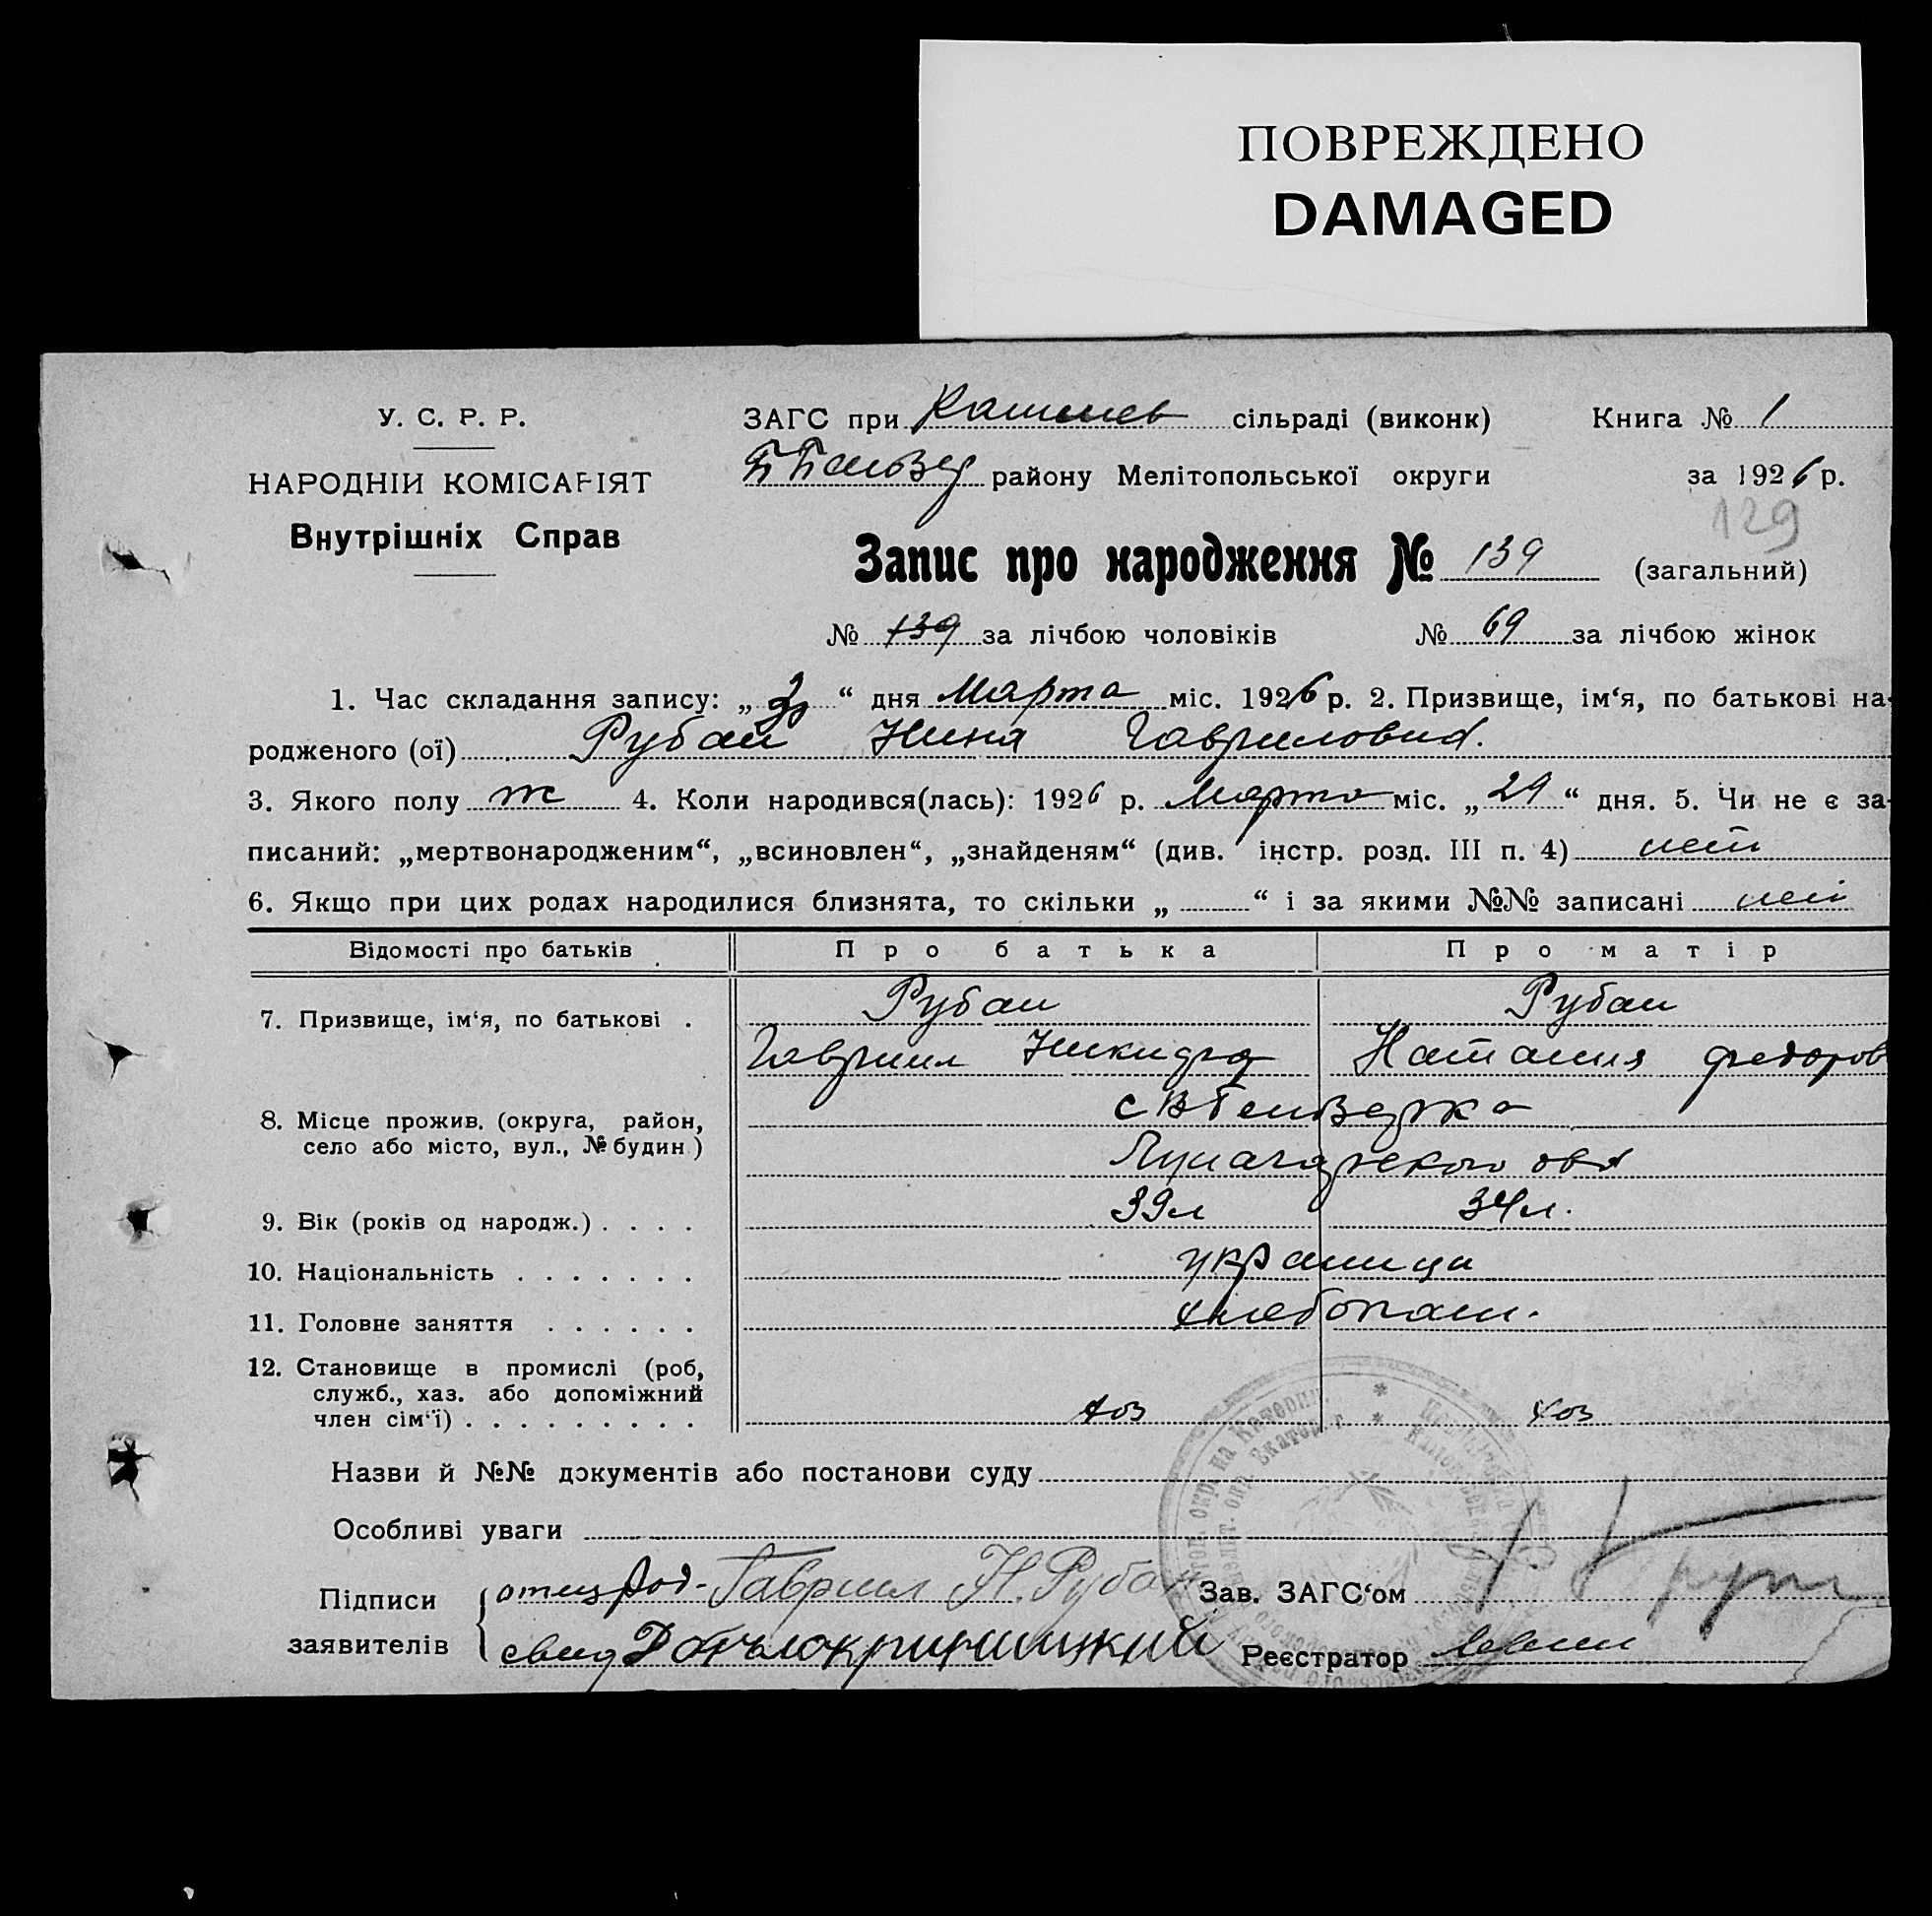 ПОВРЕЖДЕНО
DAMAGED
У. С. Р. Р.
НАРОДНІЙ КОМІСАРІЯТ
Внутрішніх Справ
ЗАГС при сільраді (виконк) Книга № 1
району Мелітопольської округи за 1926 р.
129
Запис про народження № 139 (загальний)
№ 139 за лічбою чоловіків № 69 за лічбою жінок
1. Час складання запису: „ “ дня Марта міс. 1926 р. 2. Призвище, ім‘я, по батькові на-
родженого (ої) Рубан Нина Гавриловна
3. Якого полу ж 4. Коли народився(лась): 1926 р. Марта міс. „29“ дня. 5. Чи не є за-
писаний: „мертвонародженим“, „всиновлен“, „знайденям“ (див. інстр. розд. III п. 4) нет
6. Якщо при цих родах народилися близнята, то скільки „ “ і за якими №№ записані нет
Відомості про батьків Про батька Про матір
7. Призвище, ім‘я, по батькові . Рубан Рубан
Гавриил Никифор Наталия Федоров
8. Місце прожив. (округа, район,
село або місто, вул., № будин.)
9. Вік (років од народж.) . . . . 39 л 34 л.
10. Національність . . . . . . . украинцы
11. Головне заняття . . . . . . хлебопаш.
12. Становище в промислі (роб,
служб., хаз. або допоміжний
член сім‘ї) . . . . . . . . . хоз хоз
Назви й №№ документів або постанови суду
Особливі уваги
Підписи
заявителів
отец Гавриил Н. Рубан Зав. ЗАГС‘ом
свид Реєстратор